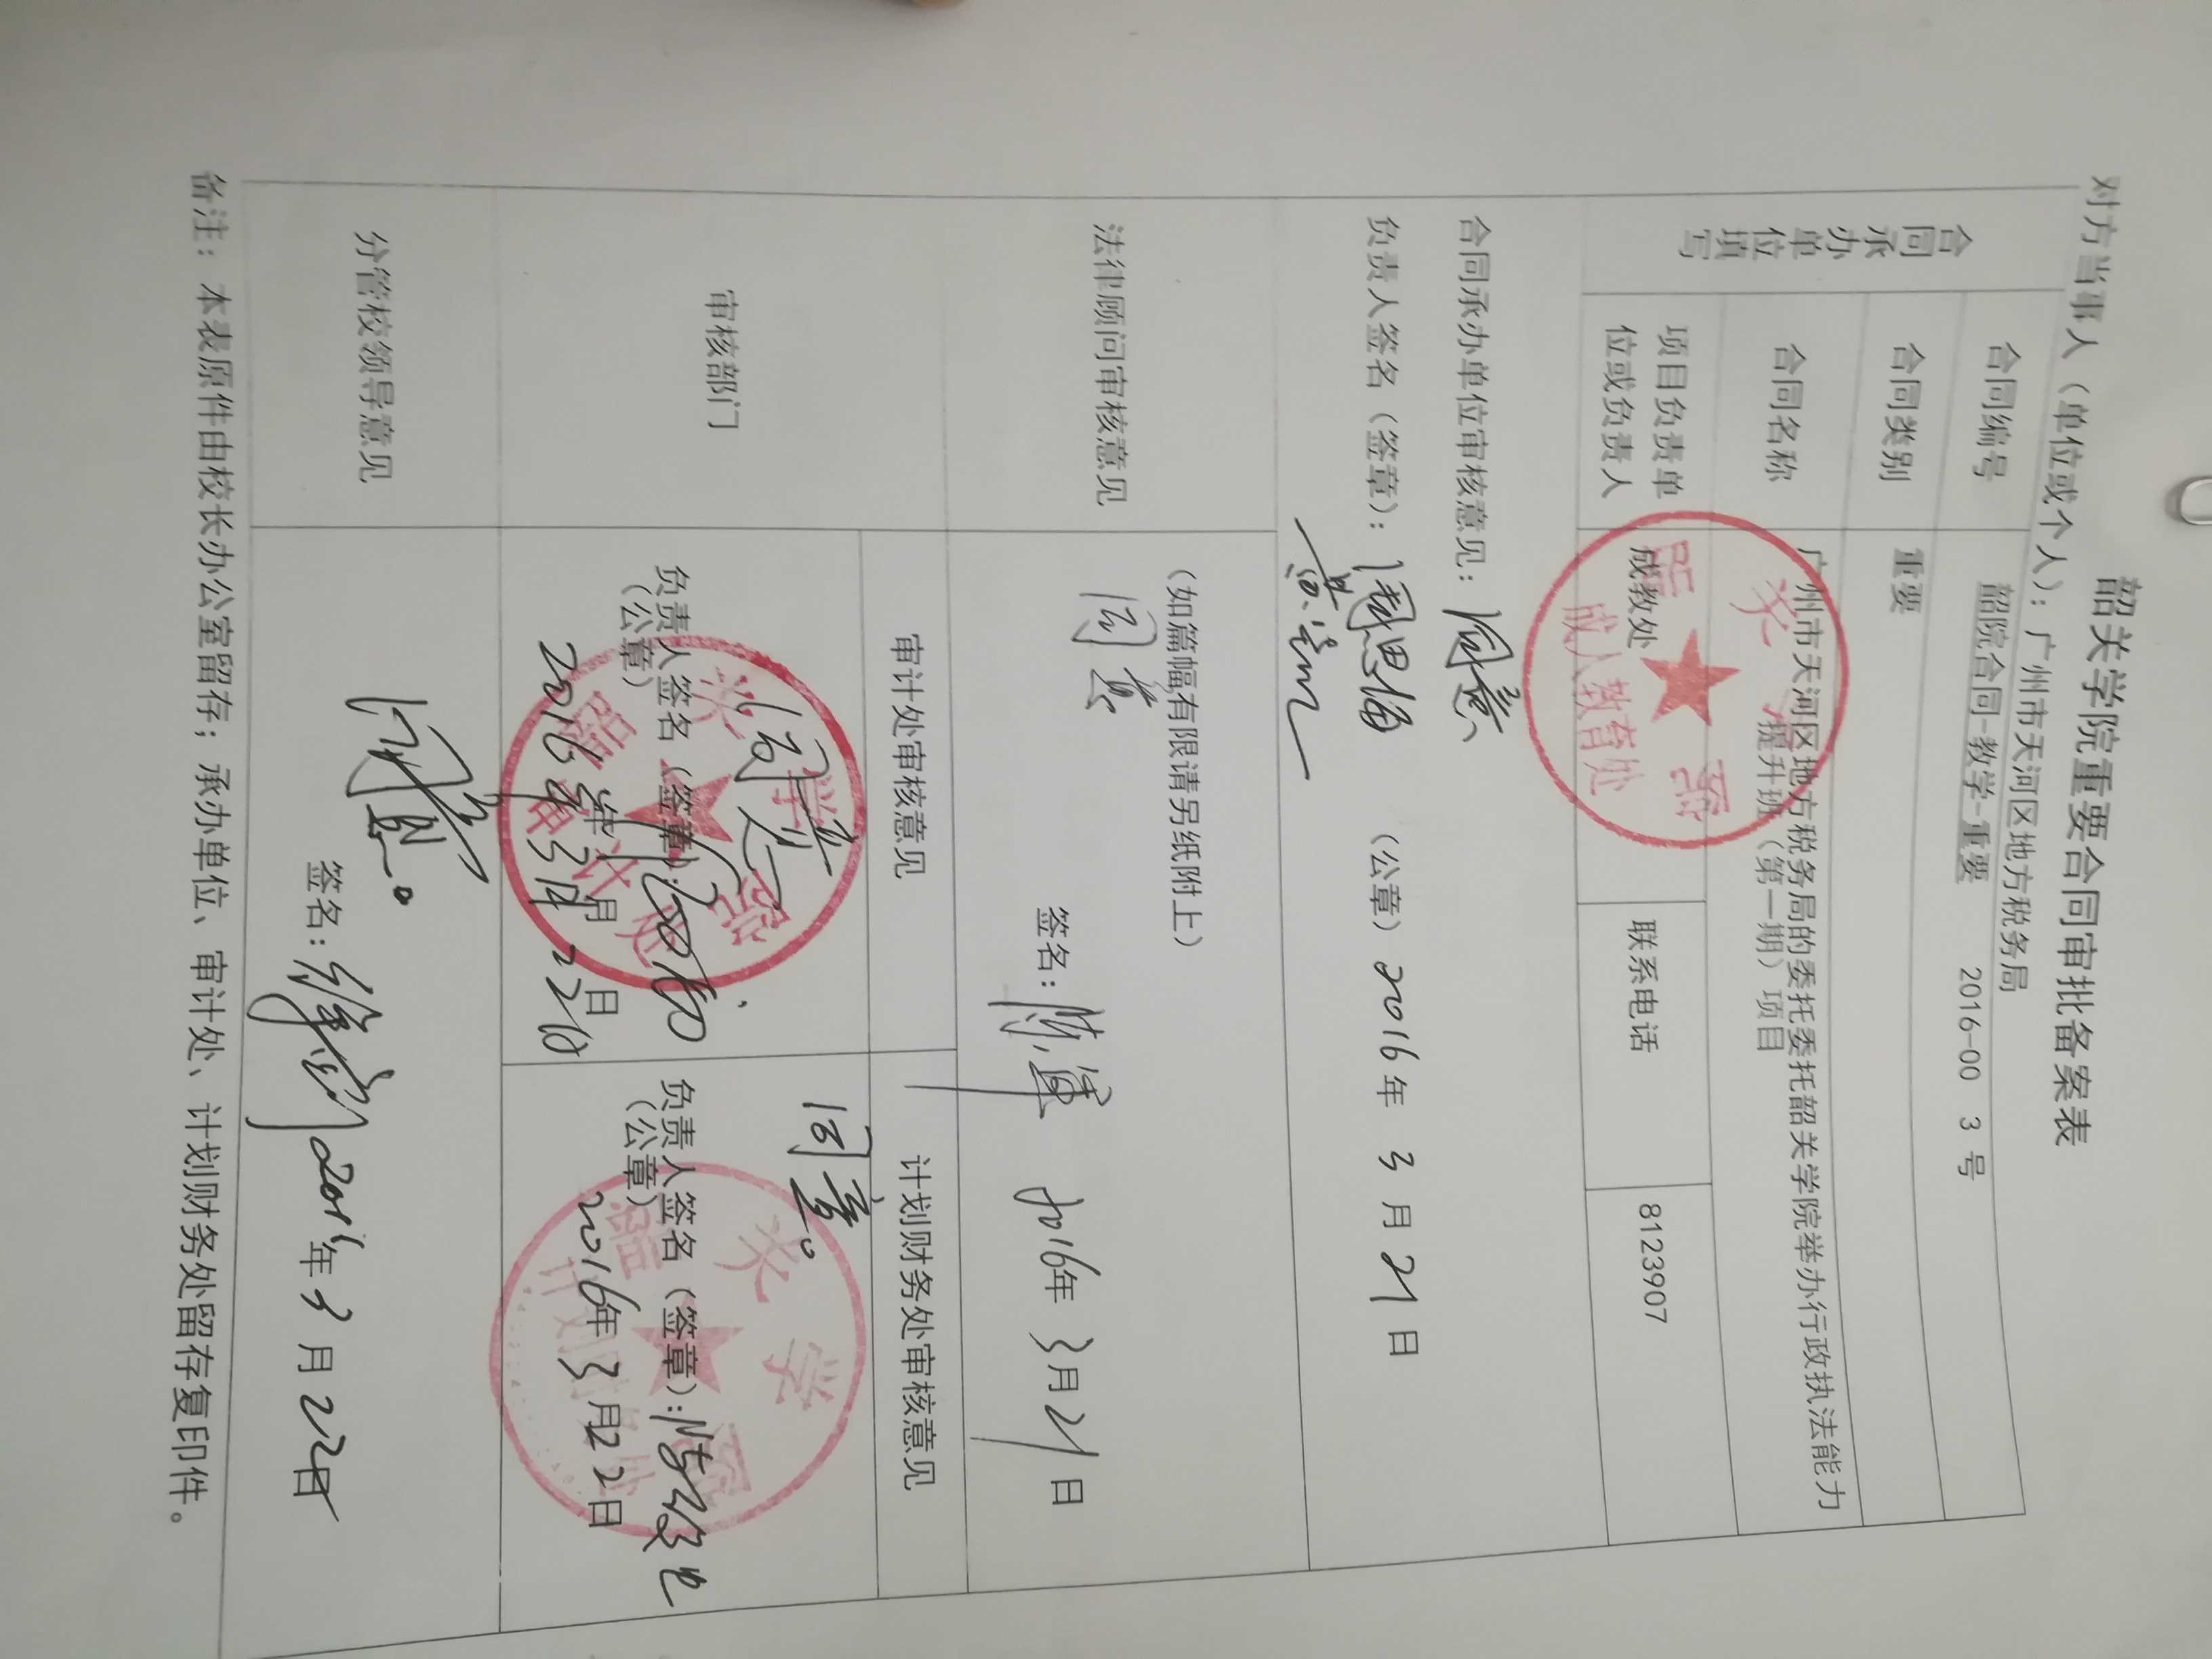 韶关学院重要合同审批备案表
对方当事人（单位或个人）：广州市天河区地方税务局
合同承办单位填写
合同编号
韶院合同-教学-重要 2016-00 3 号
合同类别
重要
合同名称
广州市天河区地方税务局的委托委托韶关学院举办行政执法能力
提升班（第一期）项目
项目负责单
位或负责人
成教处
联系电话
8123907
韶关学院
成人教育处
合同承办单位审核意见：同意
负责人签名（签章）： （公章）2016年 3 月 21 日
法律顾问审核意见
（如篇幅有限请另纸附上）
同意
签名：陈军 2016年 3月21日
审核部门
审计处审核意见
计划财务处审核意见
同意
负责人签名（签章）：
（公章）
年 月 日
2016年3月22日
韶关学院
审计处
同意。
负责人签名（签章）：
（公章）
2016年 3 月22日
韶关学院
计划财务处
分管校领导意见
同意。
签名： 年 3 月 22日
备注：本表原件由校长办公室留存；承办单位、审计处、计划财务处留存复印件。